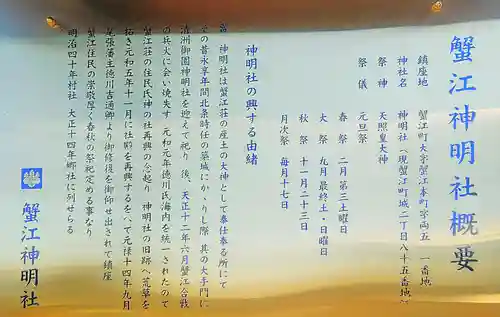 蟹江神明社概要
鎮座地 蟹江町大字蟹江本町字両五 一番地
神社名 神明社(現蟹江町城二丁目八十五番地
祭神 天照皇大神
祭儀 元旦祭
春祭 二月第三土曜日
大祭 九月最終土・日曜日
秋祭 十一月二十三日
月次祭 毎月十七日
神明社の興する由緒
当 神明社は蟹江荘の産土の大神として奉仕奉る所にて
その昔永享年間北條時任の築城にかゝりし際 其の大手門に
清洲御園神明社を迎えて祀り 後、天正十二年六月蟹江合戦
の兵火に会い焼失す 元和元年徳川氏海内を統一されたので
蟹江荘の住民氏神の社再興の念起り 神明社の旧跡へ荒草を
拓き元和五年十一月に社殿を再興するをへて元禄十四年九月
尾張藩主徳川吉通卿より御修復を御仰せ出されて鎮座
蟹江住民の崇敬厚く春秋の祭祀定める事なり
明治四十年村社 大正十四年郷社に列せらる
蟹江神明社